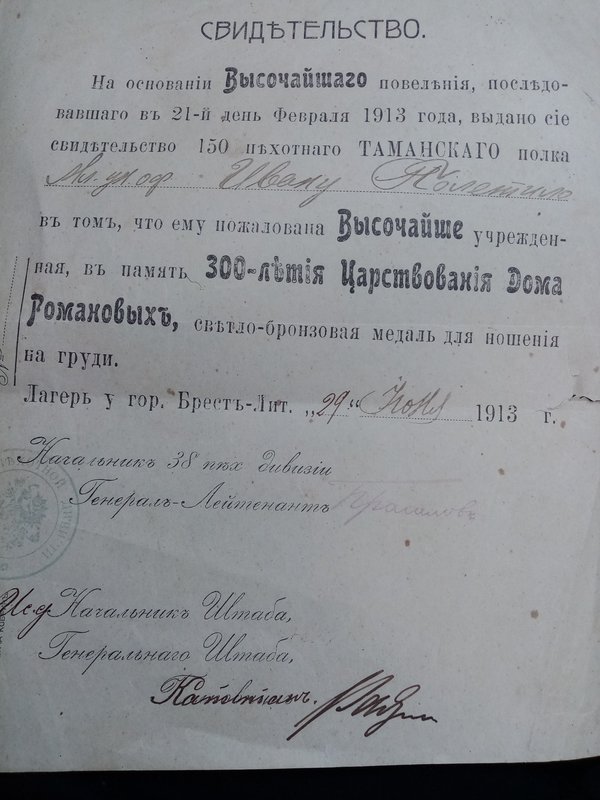 СВИДѢТЕЛЬСТВО.
На основаніи Высочайшаго повелѣнія, послѣдо-
вавшаго въ 21-й день Февраля 1913 года, выдано сіе
свидѣтельство 150 пѣхотнаго ТАМАНСКАГО полка
Ивану
въ томъ, что ему пожалована Высочайше учрежден-
ная, въ память 300-лѣтія Царствованія Дома
Романовыхъ, свѣтло-бронзовая медаль для ношенія
на груди.
Лагерь у гор. Брестъ-Лит. „29“ Іюня 1913 г.
Начальникъ 38 пѣх дивизіи
Генералъ-Лейтенантъ
Начальникъ Штаба,
Генеральнаго Штаба,